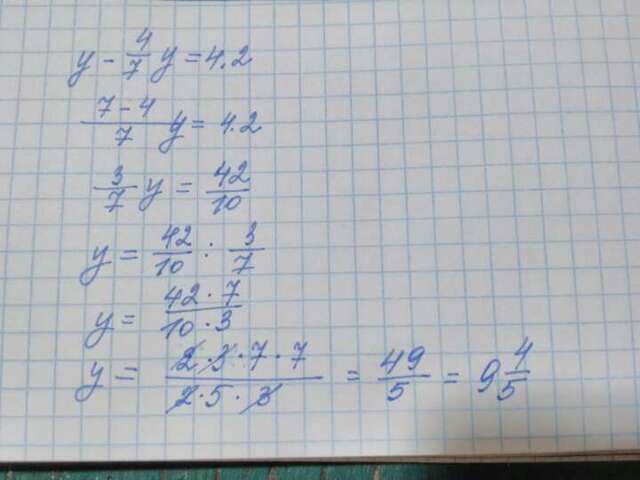 y - 4/7 y = 4.2
(7 - 4)/7 y = 4.2
3/7 y = 42/10
y = 42/10 : 3/7
y = (42 · 7)/(10 · 3)
y = (2 · 3 · 7 · 7)/(2 · 5 · 3) = 49/5 = 9 4/5